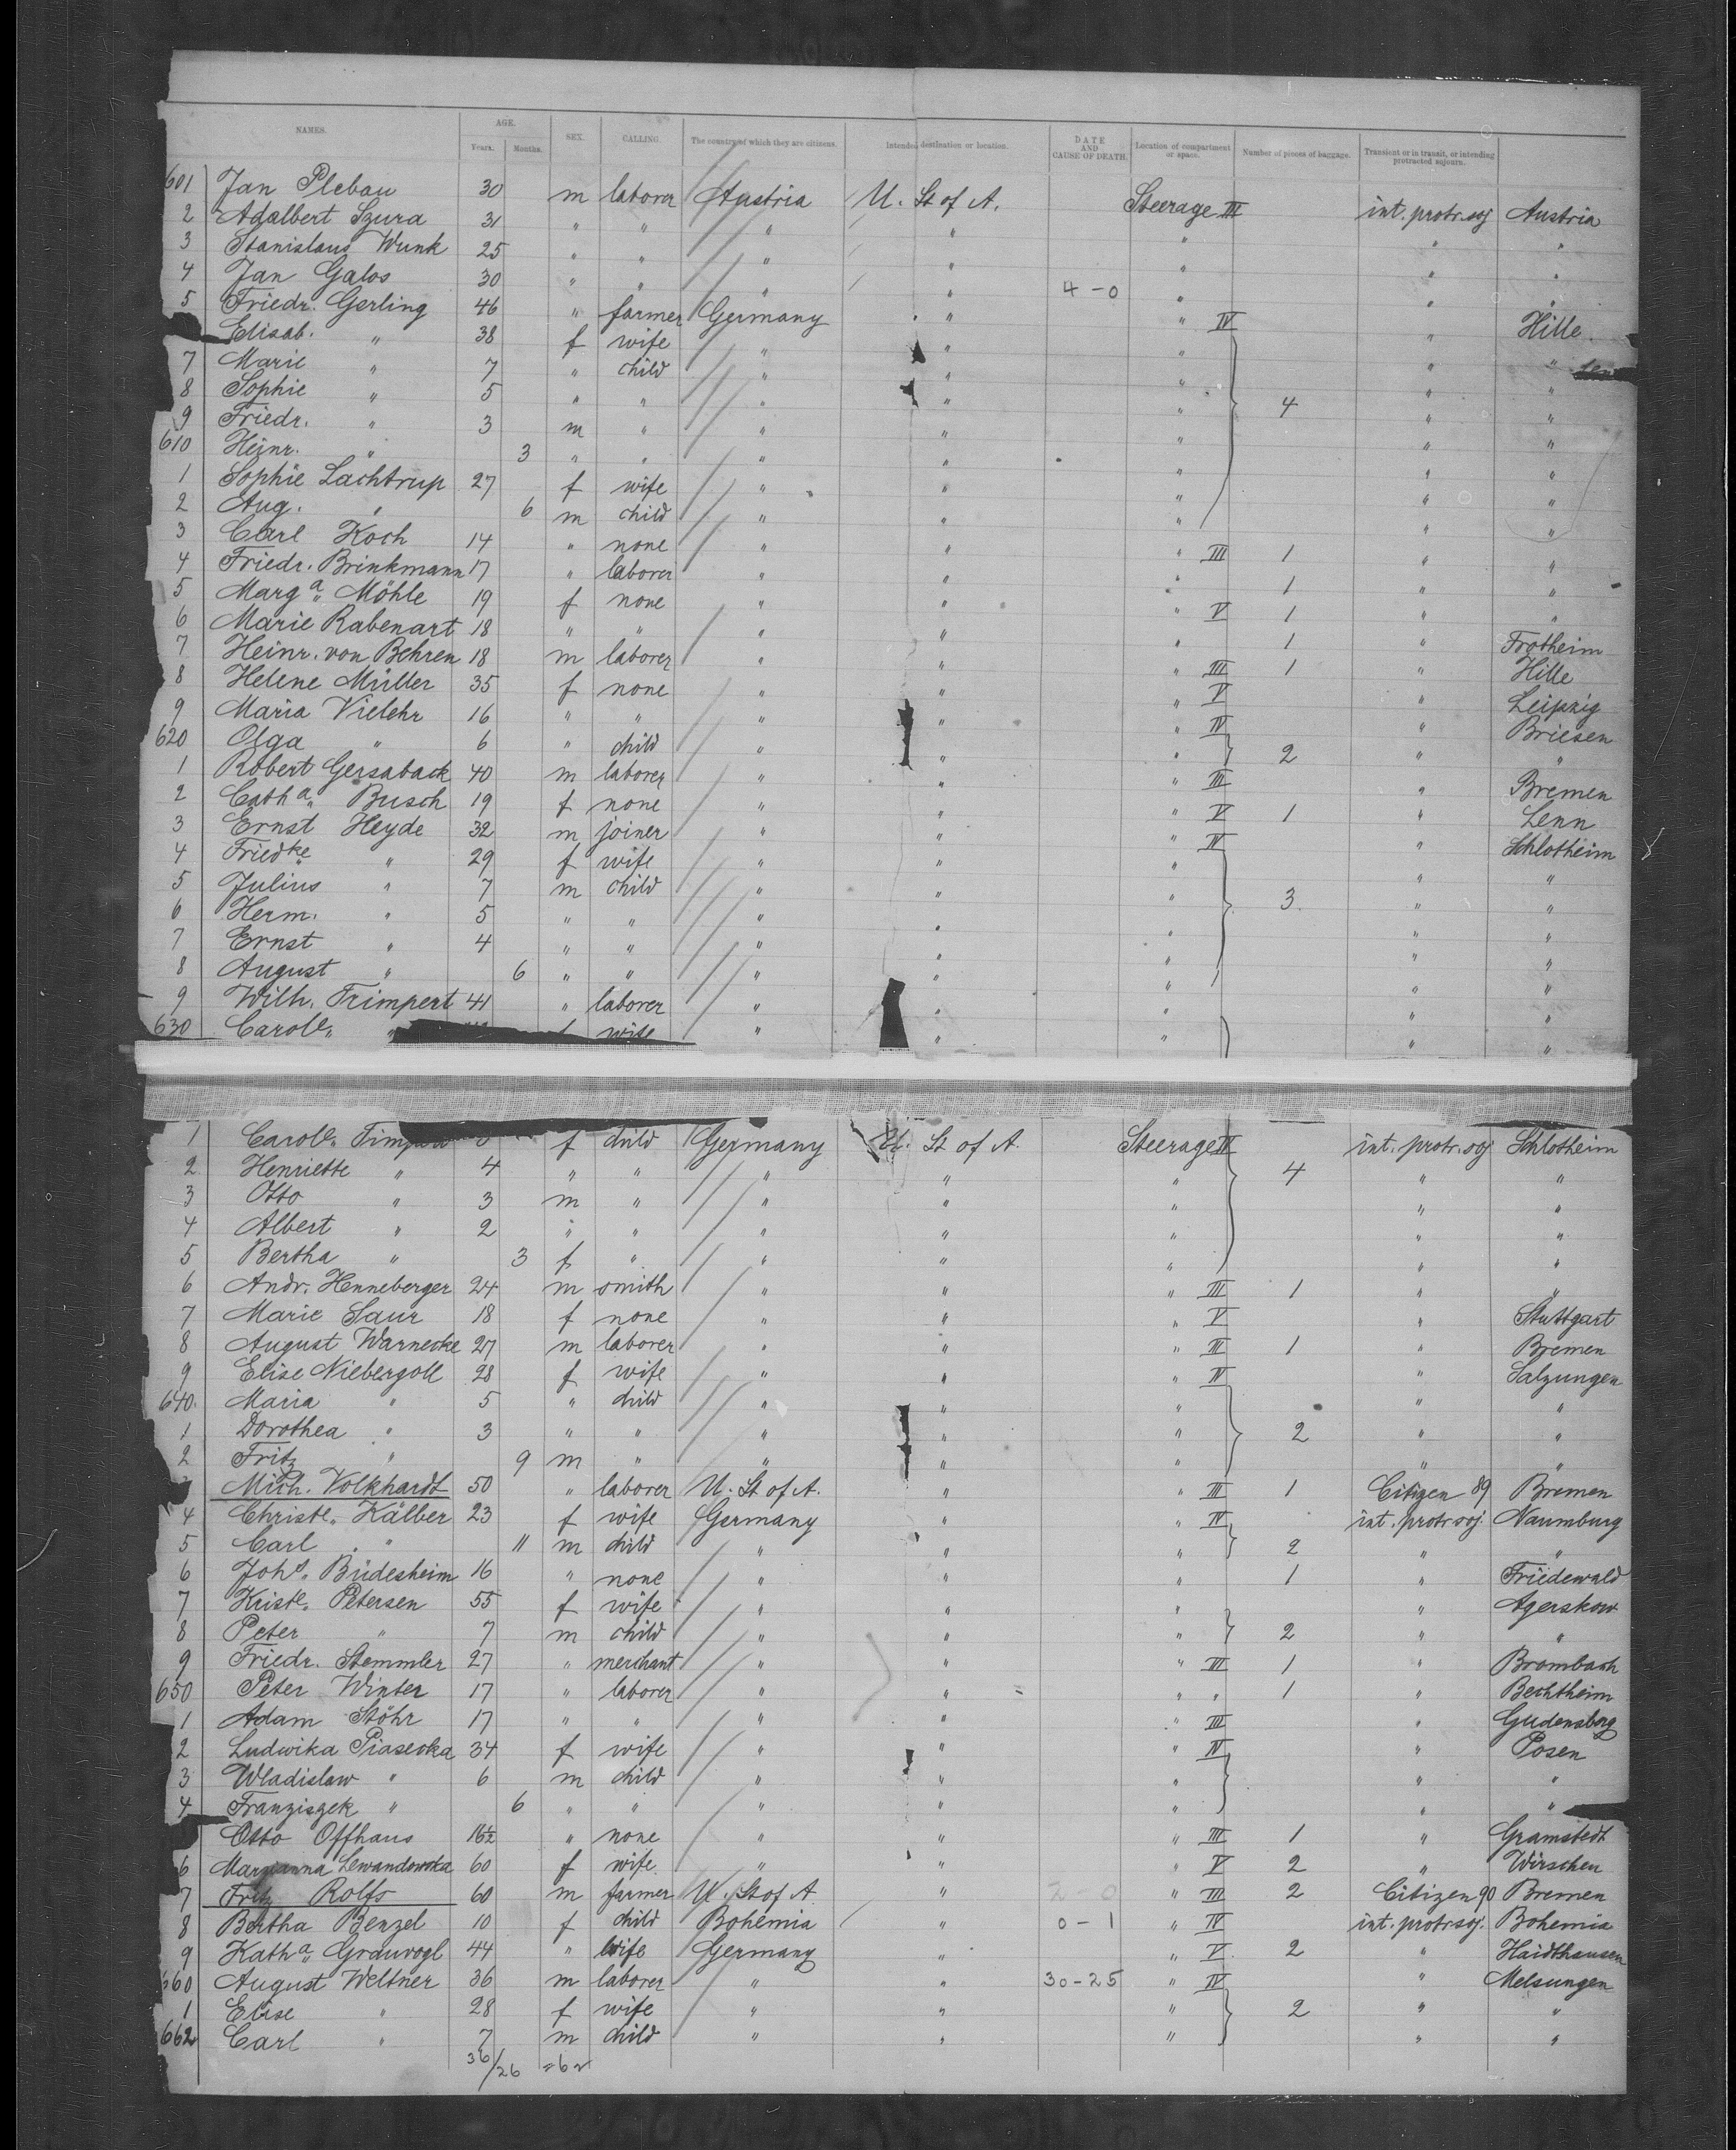 NAMES. AGE. Years. Months. SEX. CALLING. The country of which they are citizens. Intended destination or location. DATE AND CAUSE OF DEATH. Location of compartment or space. Number of pieces of baggage. Transient or in transit, or intending protracted sojourn.
601 Jan Plebau 30 m laborer Austria U. St of A. Steerage III int. protr. soj Austria
2 Adalbert Szura 31 " " " " " " "
3 Stanislaus Wunk 25 " " " " " " "
4 Jan Galos 30 " " " " 4-0 " " "
5 Friedr. Gerling 46 " farmer Germany " " IV " Hille
Elisab. " 38 f wife " " " " "
7 Marie " 7 " child " " " " "
8 Sophie " 5 " " " " " 4 " "
9 Friedr. " 3 m " " " " " "
610 Heinr. " 3 " " " " " " "
1 Sophie Lachtrup 27 f wife " " " " "
2 Aug. " 6 m child " " " " "
3 Carl Koch 14 " none " " " III 1 " "
4 Friedr. Brinkmann 17 " laborer " " " 1 " "
5 Marga Möhle 19 f none " " " V 1 " "
6 Marie Rabenart 18 " " " " " 1 " Frotheim
7 Heinr. von Behren 18 m laborer " " " III 1 " Hille
8 Helene Müller 35 f none " " " V " Leipzig
9 Maria Vielehr 16 " " " " " IV " Briesen
620 Olga " 6 " child " " " 2 " "
1 Robert Gersaback 40 m laborer " " " III " Bremen
2 Catha Busch 19 f none " " " V 1 " Lenn
3 Ernst Heyde 32 m joiner " " " IV " Schlotheim
4 Friedke " 29 f wife " " " " "
5 Julius " 7 m child " " " 3 " "
6 Herm. " 5 " " " " " " "
7 Ernst " 4 " " " " " " "
8 August " 6 " " " " " " "
9 Wilh. Trimpert 41 " laborer " " " " "
630 Carole " f wife " " " " "
1 Carole f child Germany U. St of A. Steerage IV int. protr. soj Schlotheim
2 Henriette " 4 " " " " " 4 " "
3 Otto " 3 m " " " " " "
4 Albert " 2 " " " " " " "
5 Bertha " 3 f " " " " " "
6 Andr. Henneberger 24 m smith " " " III 1 " "
7 Marie Saur 18 f none " " " V " Stuttgart
8 August Warnecke 27 m laborer " " " III 1 " Bremen
9 Elise Niebergall 28 f wife " " " IV " Salzungen
640 Maria " 5 " child " " " " "
1 Dorothea " 3 " " " " " 2 " "
2 Fritz " 9 m " " " " " "
Mich. Volkhardt 50 " laborer U. St of A. " " III 1 Citizen 89 Bremen
4 Christe. Kälber 23 f wife Germany " " IV int. protr soj. Naumburg
5 Carl " 11 m child " " " 2 " "
6 Johs. Büdesheim 16 " none " " " 1 " Friedewald
7 Kriste. Petersen 55 f wife " " " " Agerskow
8 Peter " 7 m child " " " 2 " "
9 Friedr. Stemmler 27 " merchant " " " III 1 " Brombach
650 Peter Winter 17 " laborer " " " " 1 " Bechtheim
1 Adam Stöhr 17 " " " " " III " Gudensberg
2 Ludwika Piasecka 34 f wife " " " IV " Posen
3 Wladislaw " 6 m child " " " " "
4 Franziszek " 6 " " " " " " "
Otto Offhaus 16½ " none " " " III 1 " Gramstedt
6 Maryanna Lewandowska 60 f wife " " " V 2 " Wirschen
7 Fritz Rolfs 60 m farmer U. St of A " 2-0 " III 2 Citizen 90 Bremen
8 Bertha Benzel 10 f child Bohemia " 0-1 " IV int. protr soj. Bohemia
9 Katha Grauvogl 44 " wife Germany " " V 2 " Haidthausen
660 August Weltner 36 m laborer " " 30-25 " IV " Melsungen
1 Elise " 28 f wife " " " 2 " "
662 Carl " 7 m child " " " " "
36/26 =62